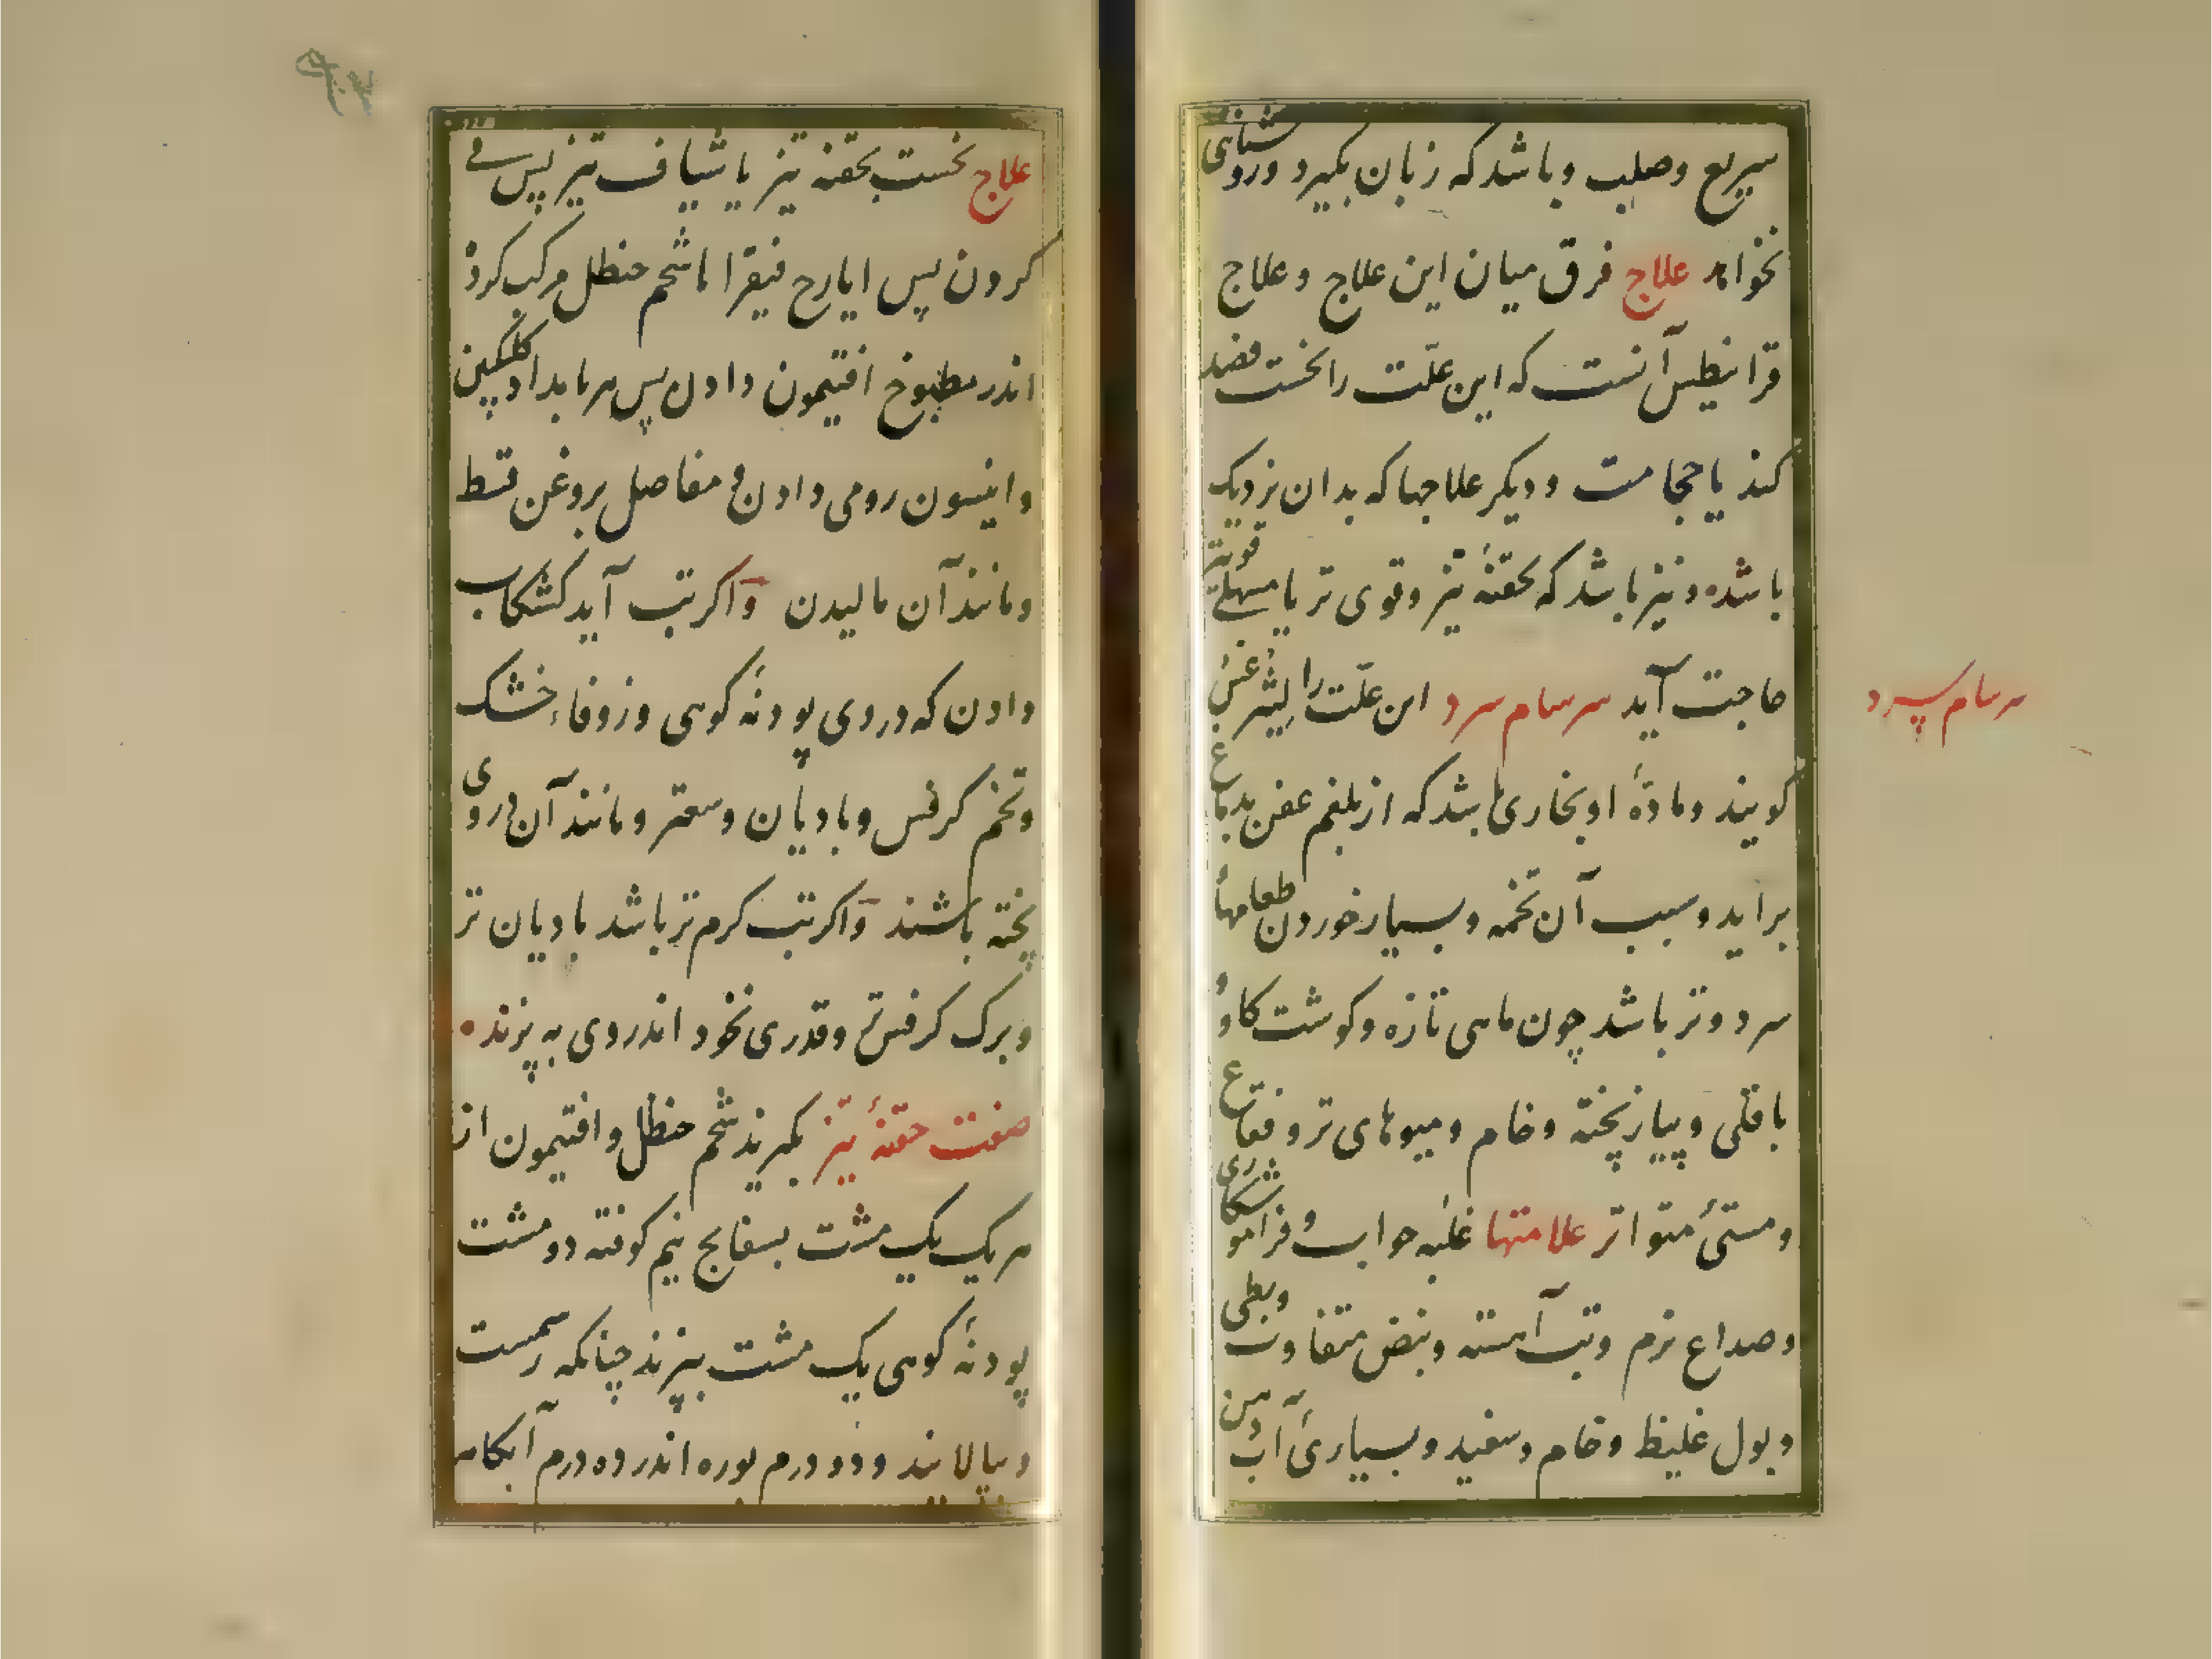 سریع وصلب وباشد که زبان بکیرد وروشنایی
نخواهد علاج فرق میان این علاج وعلاج
قرانیطس آنست که این علّت را نخست فصد
کنند یا حجامت ودیکر علاجها که بدان نزدیک
باشده ونیز باشد که بحقنهٔ تیز وقوی تر یا مسهلے قویتر
حاجت آید سرسام سرد این علّت را لیثرغس
سرسام سرد
کویند ومادّهٔ او بخاری باشد که از بلغم عفن بدماغ
براید وسبب آن تخمه وبسیار خوردن طعامهأ
سرد وتر باشد چون ماهی تازه وکوشت کاو و
باقلی وپیاز پخته وخام ومیوهای تر وفقاع
ومستیٔ متواتر علامتها غلبه خواب و فراموشکاری
وصداع نرم وتب آهسته ونبض متفاوت وبطی
وبول غلیظ وخام وسفید وبسیاریٔ آب دهن
علاج نخست بحقنه تیز یا شیاف تیز پس قے
کردن پس ایارج فیقرا با شحم حنظل مرکب کرده
اندر مطبوخ افتیمون دادن پس هر بامداد کلنکبین
وانیسون رومی دادن و مفاصل بروغن قسط
ومانند آن مالیدن واکر تب آید کشکاب
دادن که در وی پودنهٔ کوهی وزوفاء خشک
وتخم کرفس وبادیان وسعتر ومانند آن در وی
پخته باشند واکر تب کرم تر باشد بادیان تر
وبرک کرفس تر وقدری نخود اندر وی به پزند ه
صفت حقنهٔ تیز بکیرند شحم حنظل وافتیمون از
هر یک یک مشت بسفایج نیم کوفته دو مشت
پودنهٔ کوهی یک مشت بپزند چنانکه رسمست
وبیالایند ودو درم بوره اندر ده درم آبکامه